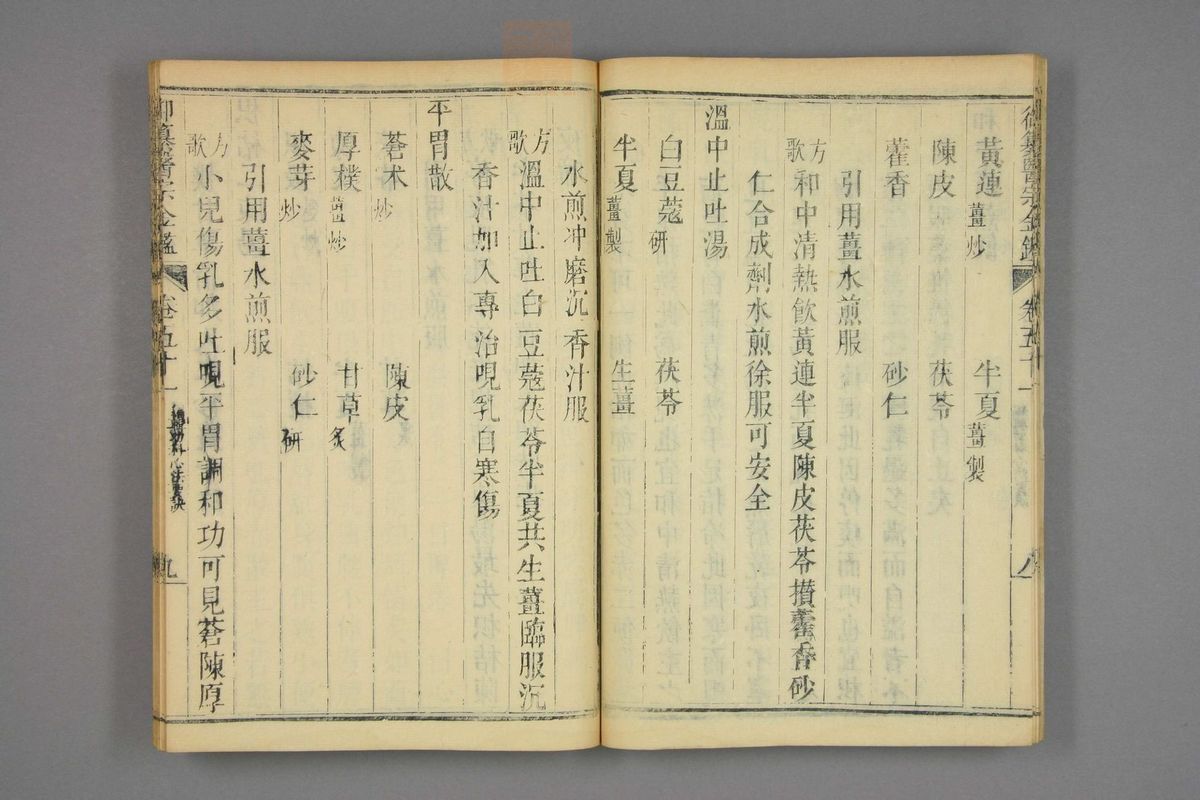 御纂醫宗金鑑 卷五十一 八
黃連 薑炒 半夏 薑製
陳皮 茯苓
藿香 砂仁
引用薑水煎服
方歌 和中清熱飲黃連半夏陳皮茯苓攢藿香砂
仁合成劑水煎徐服可安全
溫中止吐湯
白豆蔻 研 茯苓
半夏 薑製 生薑
水煎冲磨沉香汁服
方歌 溫中止吐白豆蔻茯苓半夏共生薑臨服沉
香汁加入專治哯乳自寒傷
平胃散
蒼朮 炒 陳皮
厚樸 薑炒 甘草 炙
麥芽 炒 砂仁 研
引用薑水煎服
方歌 小兒傷乳多吐哯平胃調和功可見蒼陳厚
御纂醫宗金鑑 卷五十一 九